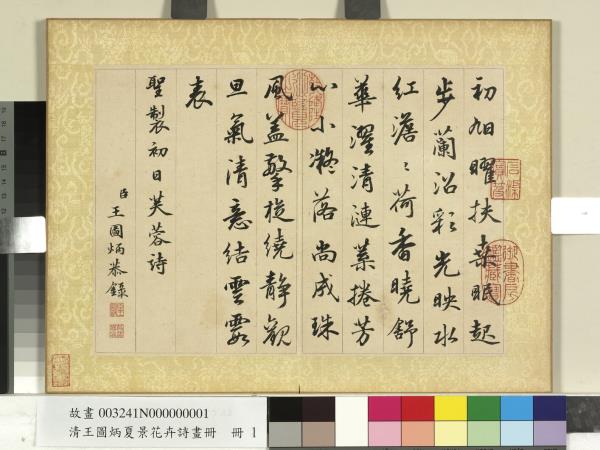 初旭曜扶桑眠起
步蘭沼彩光映水
紅澹〻荷香曉舒
華濯清漣葉捲芳
心小凝落尚成珠
風蓋擎旋繞靜觀
旦氣清意結雲霞
表
聖製初日芙蓉詩
臣王圖炳恭錄
故畫 003241N000000001
清王圖炳夏景花卉詩畫冊 冊 1